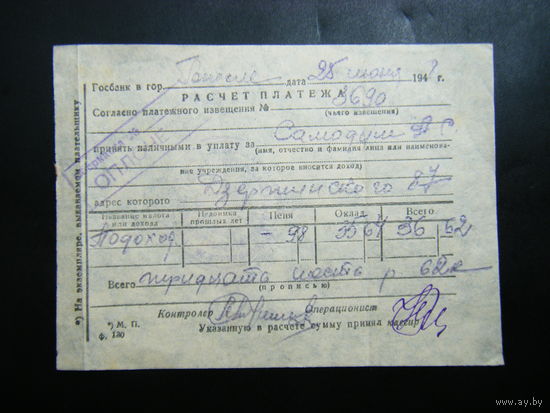 Госбанк в гор. Гомеле дата 28 июня 194 г.
РАСЧЕТ ПЛАТЕЖА
Согласно платежного извещения № 3690
(чьего извещения)
принять наличными в уплату за Самодум
(имя, отчество и фамилия лица или наименование учреждения, за которое вносится доход)
адрес которого Дзержинского 87
Название налога или дохода Недоимка прошлых лет Пеня Оклад Всего
Подоход - 98 35 64 36 62
Всего тридцать шесть р 62 к
(прописью)
Контролер Операционист
*) М. П. Указанную в расчете сумму принял кассир
ф. 130
*) На экземпляре, выдаваемом плательщику